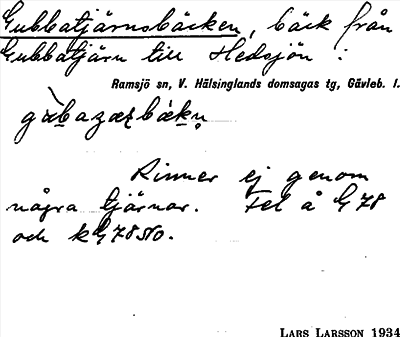 Gubbatjärnsbäcken, bäck från
Gubbatjärn till Hedsjön :
Ramsjö sn, V. Hälsinglands domsagas tg, Gävleb. l.
Rinner ej genom
några tjärnar. Fel å G 78
och kG78SO.
LARS LARSSON 1934